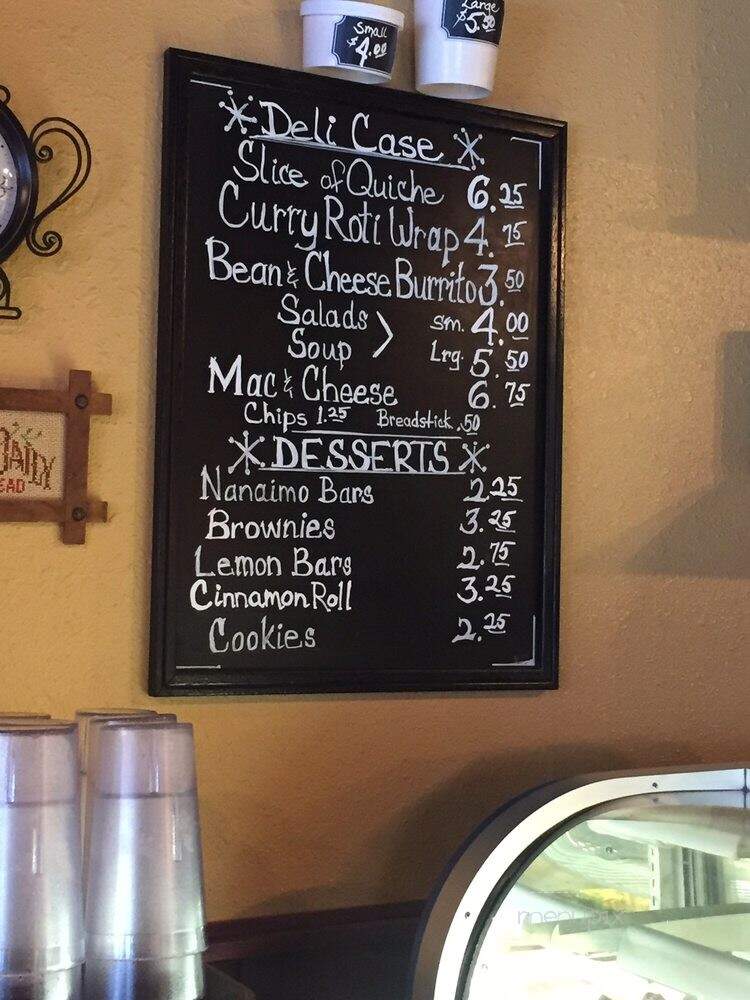 Small
$4.00
Large
$5.50
Deli Case
Slice of Quiche 6.25
Curry Roti Wrap 4.75
Bean & Cheese Burrito 3.50
Salads sm. 4.00
Soup Lrg. 5.50
Mac & Cheese 6.75
Chips 1.25 Breadstick .50
DESSERTS
Nanaimo Bars 2.25
Brownies 3.25
Lemon Bars 2.75
Cinnamon Roll 3.25
Cookies 2.25